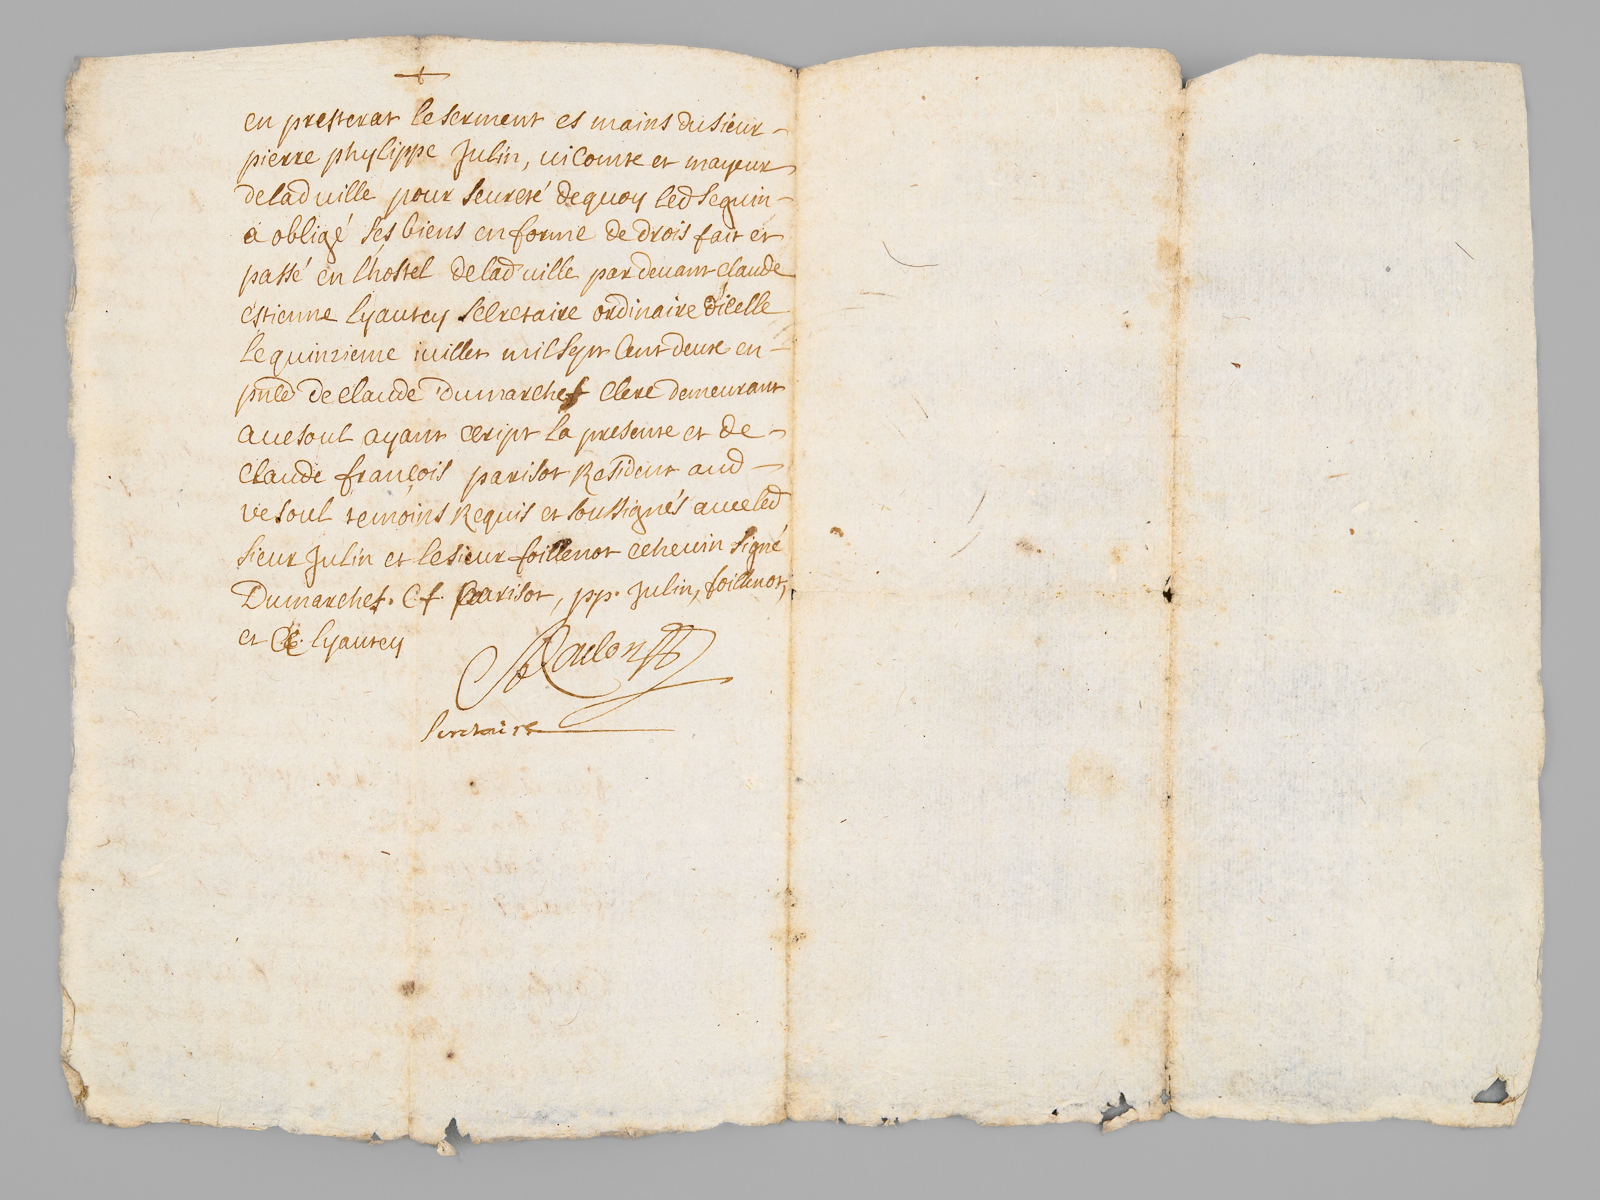 en presterat le serment es mains du sieur
pierre phylippe Julin, vicomte et mayeur
de lad ville pour seureté de quoy led Seguin
a obligé ses biens en forme de drois fait et
passé en l'hostel de lad ville pardevant claude
estienne lyautey secretaire ordinaire d'icelle
le quinzieme iuillet mil sept cent deux en
pnce de claude dumarchef clerc demeurant
a vesoul ayant escript la presente et de
claude françois parisot Resident aud
vesoul temoins Requis et soussignés avec led
sieur Julin et le sieur foillenot echevin signé
Dumarchef. C. f. parisot, pp. Julin, foillenot,
et Ce. lyautey
secretaire